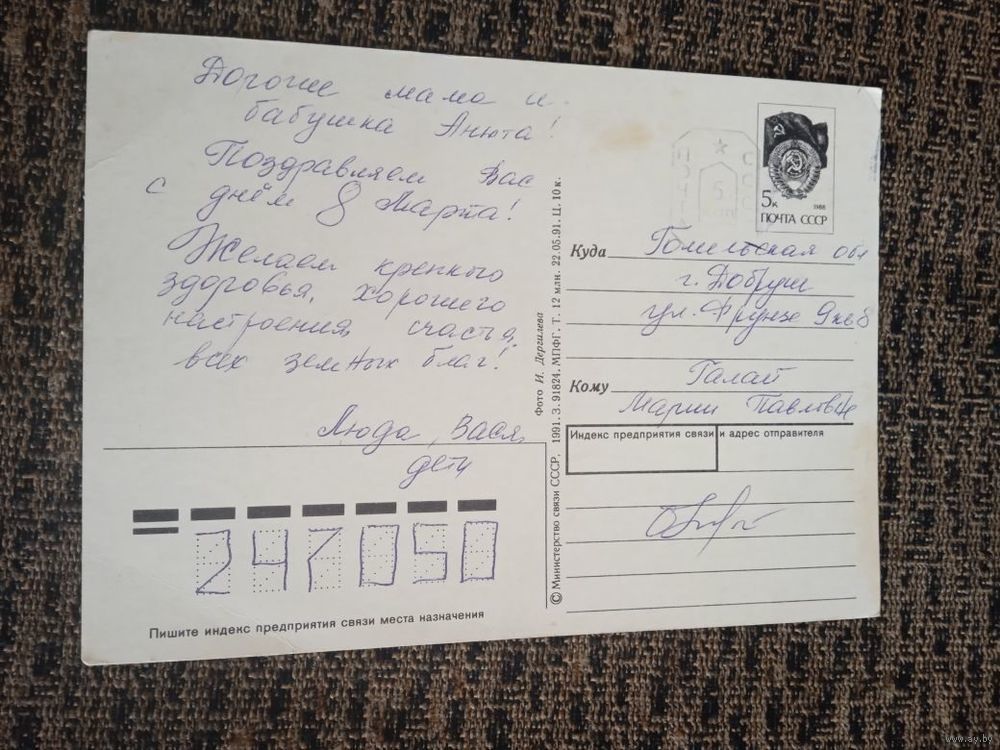 Дорогие мама и
бабушка Анюта!
Поздравляем Вас
с днём 8 Марта!
Желаем крепкого
здоровья, хорошего
настроения, счастья,
всех земных благ!
Люда, Вася,
дети
247050
Пишите индекс предприятия связи места назначения
© Министерство связи СССР, 1991. З. 91824. МПФГ. Т. 12 млн. 22.05.91. Ц. 10 к.
Фото И. Дергилева
5к
1988
ПОЧТА СССР
ПОЧТА
5
СССР
Куда Гомельская обл
г. Добруш
ул. Фрунзе 9 кв 8
Кому Галай
Марии Павловне
Индекс предприятия связи и адрес отправителя
www.ay.by